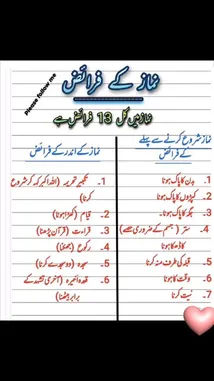 Please follow me
نماز کے فرائض
نماز میں کل 13 فرائض ہے
نماز شروع کرنے سے پہلے
کے فرائض
1۔ بدن کا پاک ہونا
2۔ کپڑوں کا پاک ہونا
3۔ جگہ کا پاک ہونا
4۔ ستر (جسم کے ضروری حصے)
کا ڈھکا ہونا
5۔ قبلہ کی طرف منہ کرنا
6۔ وقت کا ہونا
7۔ نیت کرنا
نماز کے اندر کے فرائض
1۔ تکبیر تحریمہ (اللہ اکبر کہہ کر شروع
کرنا)
2۔ قیام (کھڑا ہونا)
3۔ قراءت (قرآن پڑھنا)
4۔ رکوع (جھکنا)
5۔ سجدہ (دو سجدے کرنا)
6۔ قعدہ اخیرہ (آخری تشہد کے
برابر بیٹھنا)